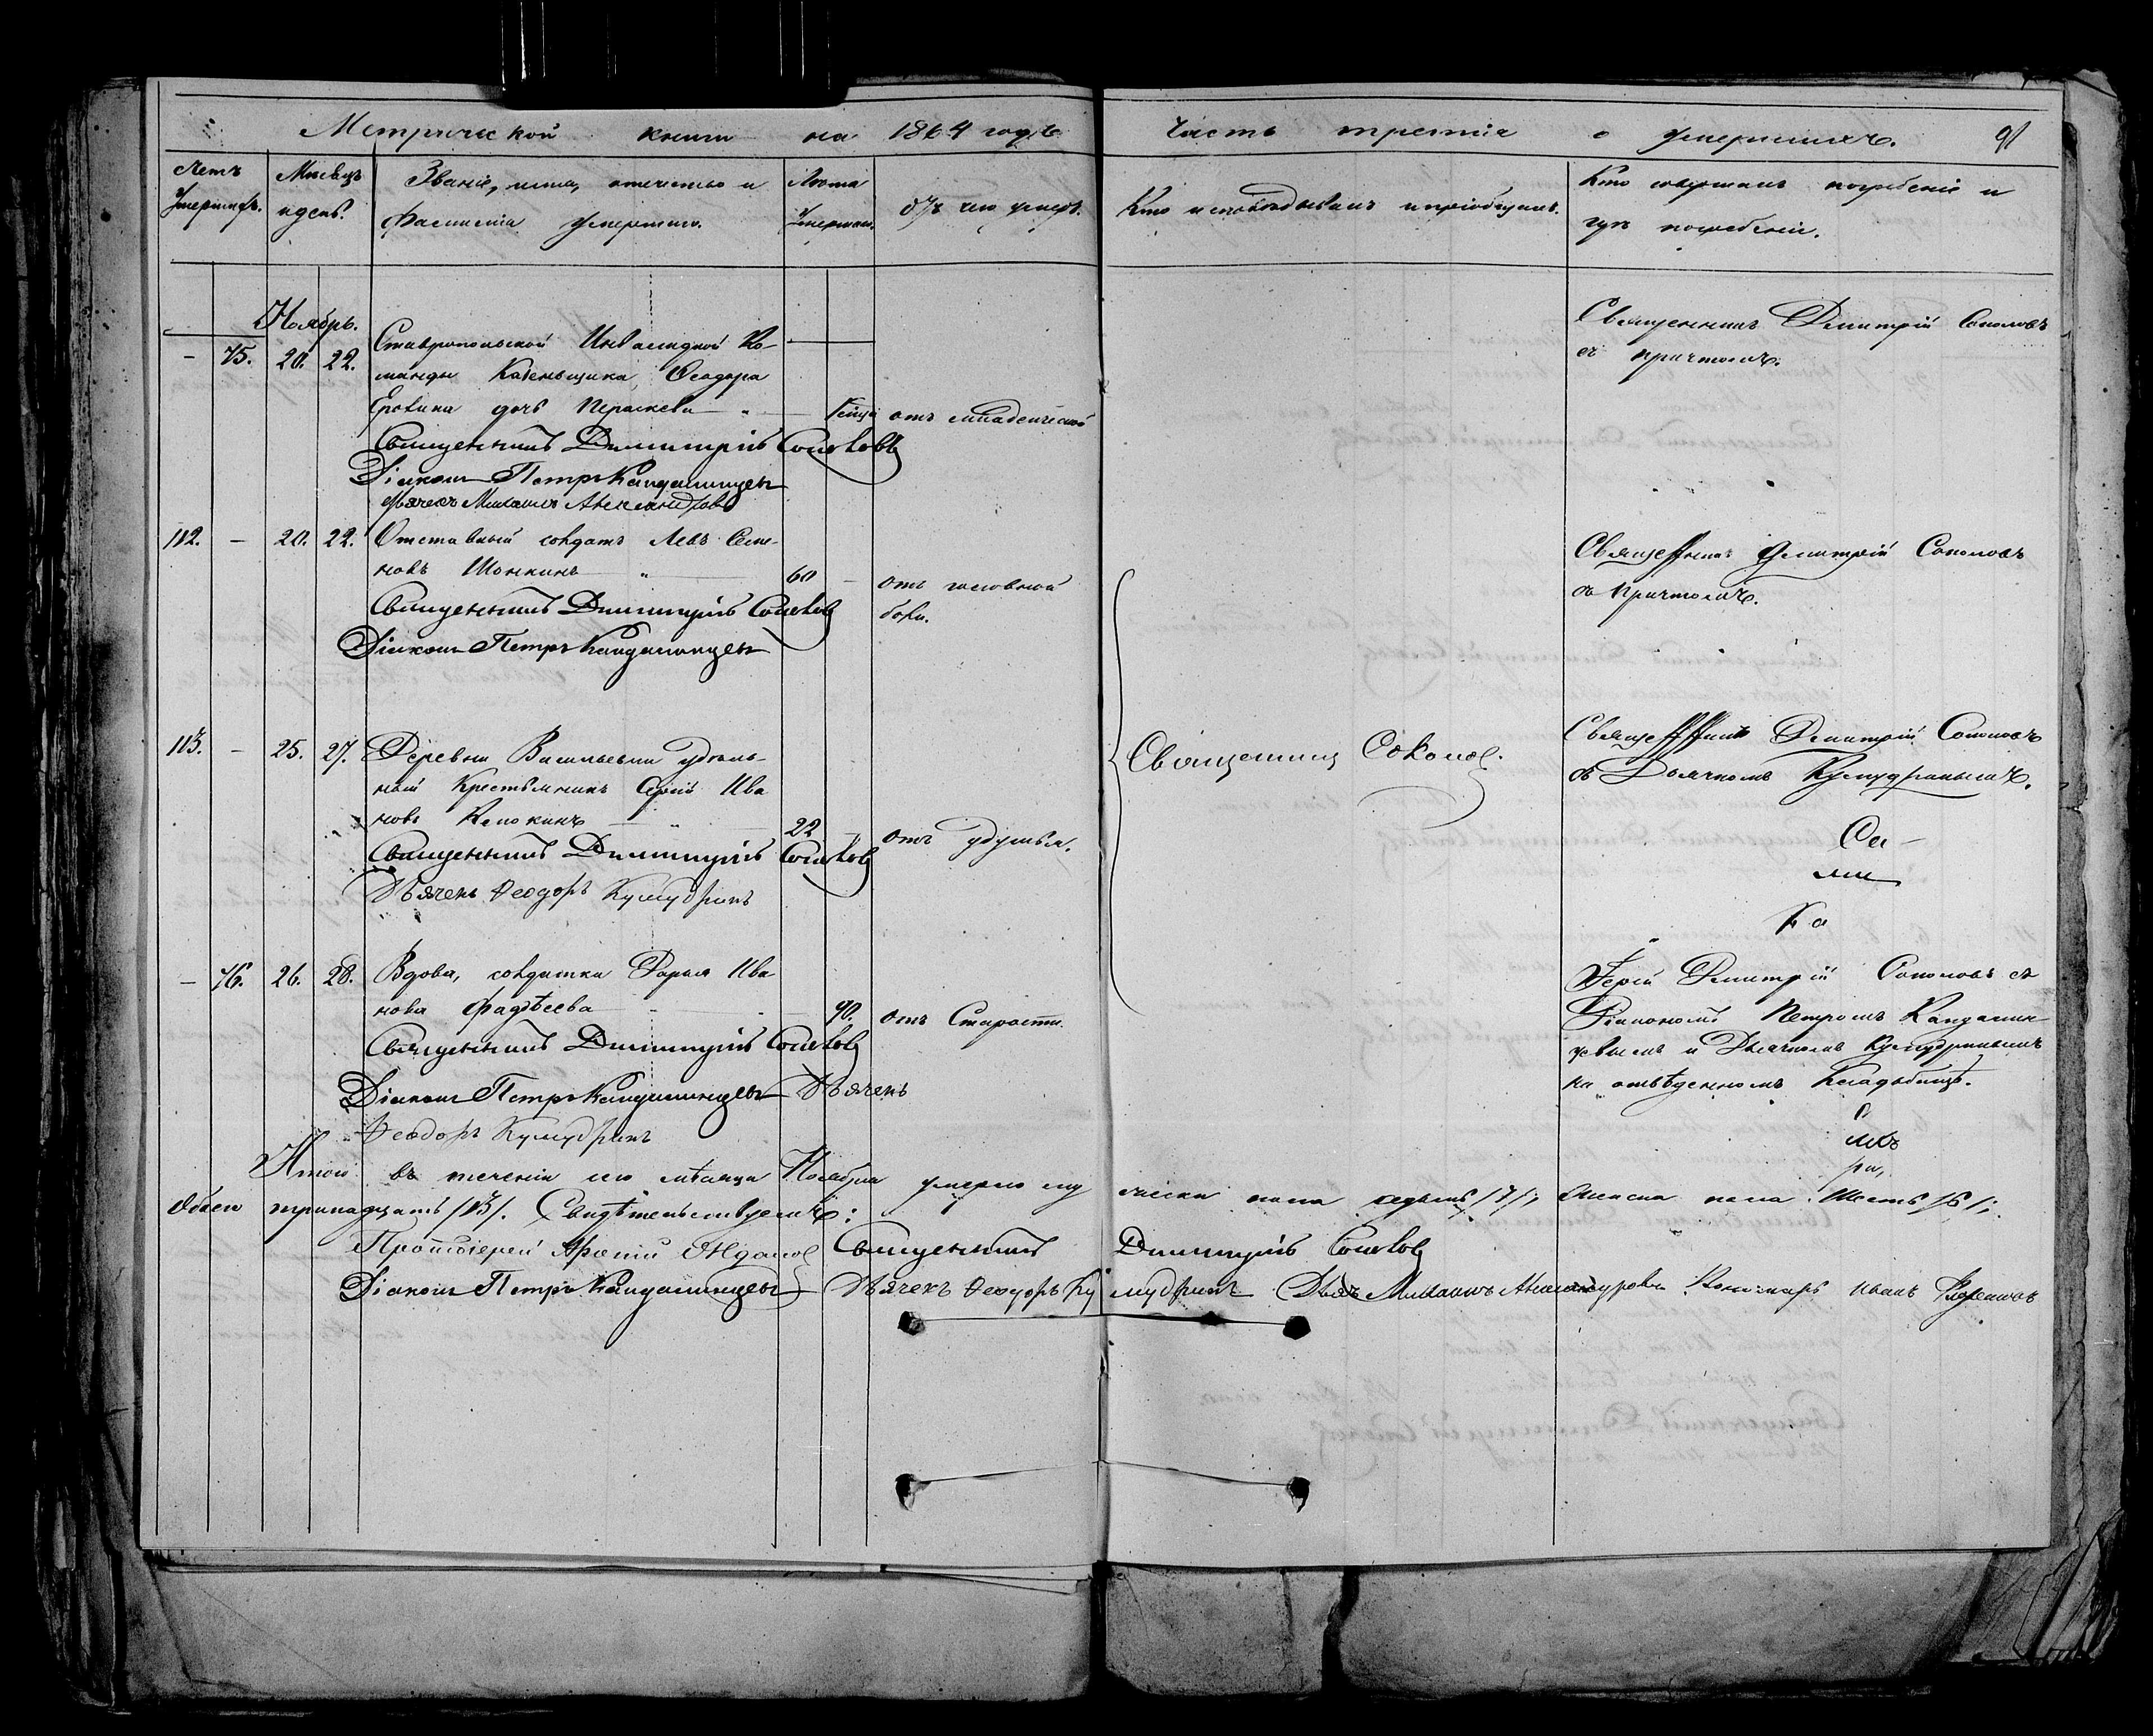 Метрической книги на 1864 годъ
Часть третія о умершихъ. 91
Счетъ Умершихъ.
Мѣсяцъ и день.
Званіе, имя, отчество и
фамилія умершаго.
Лѣта Умершаго.
Отъ чего умеръ.
Кто исповѣдывалъ и пріобщалъ.
Кто совершалъ погребеніе и
гдѣ погребены.
Ноябрь.
– 75. 20. 22. Ставропольской Инвалидной Ко-
манды Каѳеньщика Ѳеодора
дочь Параскева отъ младенческой
Священникъ Димитрій Соколовъ
Діаконъ Петръ Кандалинцевъ
Дьячекъ Михаилъ Александровъ
Священникъ Дмитрій Соколовъ
съ причтомъ.
112. – 20. 22. Отставный солдатъ Левъ Семе-
новъ Шонкинъ 60 – отъ головной
боли.
Священникъ Димитрій Соколовъ
Діаконъ Петръ Кандалинцевъ
Священникъ Дмитрій Соколовъ
съ Причтомъ.
113. – 25. 27. Деревни Васильевки удѣль-
ный Крестьянинъ Сергій Ива
новъ Клюкинъ 22 – отъ удушья.
Священникъ Димитрій Соколовъ
Дьячекъ Ѳеодоръ Кумудринъ
Священникъ Соколовъ.
Священникъ Дмитрій Соколовъ
съ Дьячкомъ Кумудринымъ.
Са-
ма
– 76. 26. 28. Вдова, солдатка Дарья Ива
нова Фадѣева 90. отъ Старости.
Священникъ Димитрій Соколовъ
Діаконъ Петръ Кандалинцевъ Дьячекъ
Ѳеодоръ Кумудринъ
Іерей Дмитрій Соколовъ съ
Діакономъ Петромъ Кандалин-
цевымъ и Дьячкомъ Кумудринымъ
на отвѣденномъ Кладбищѣ.
Итого въ теченіи сего мѣсяца Ноября умерло му жеска пола седьмъ /7/, женска пола шесть /6/;
Обоего тринадцать /13/. Свидѣтельствуемъ:
Протоіерей Священникъ Димитрій Соколовъ
Діаконъ Петръ Кандалинцевъ Дьячекъ Ѳеодоръ Кумудринъ Михаилъ Александровъ Пономарь Иванъ